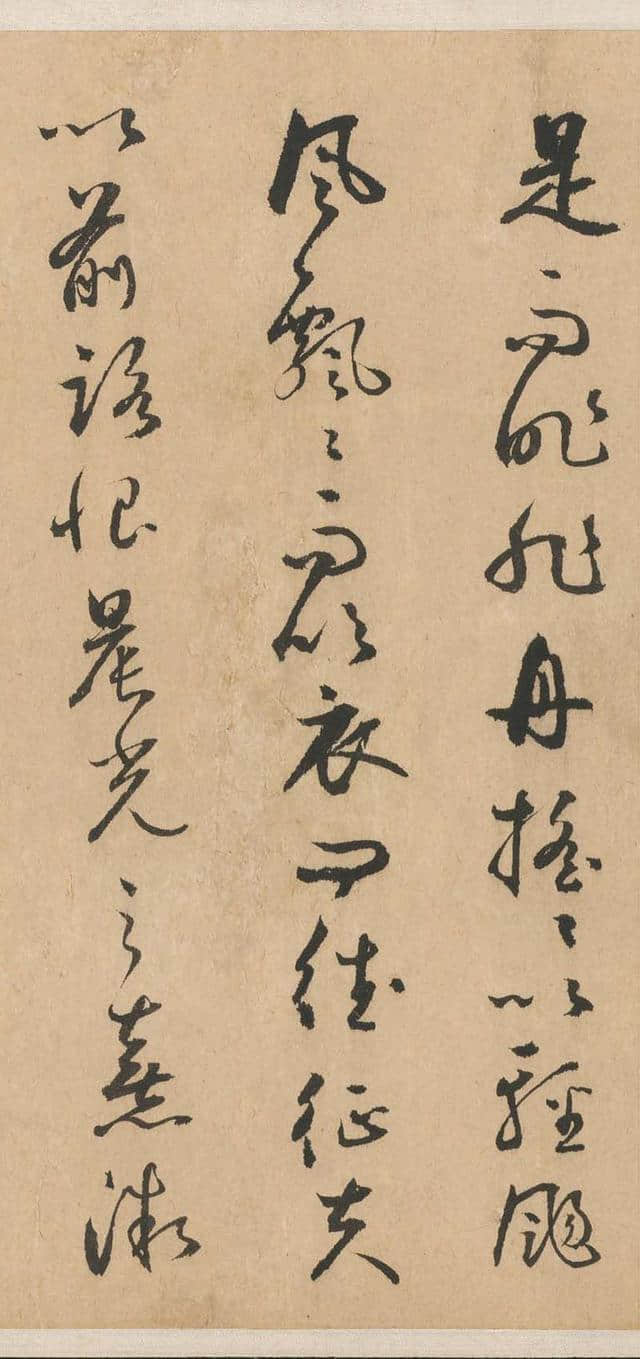 是而昨非舟搖〻以輕颺
風飄〻而吹衣問征夫
以前路恨晨光之熹微